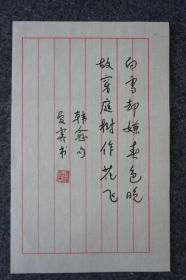 白雪却嫌春色晚
故穿庭树作花飞
韩愈句
爰霁书